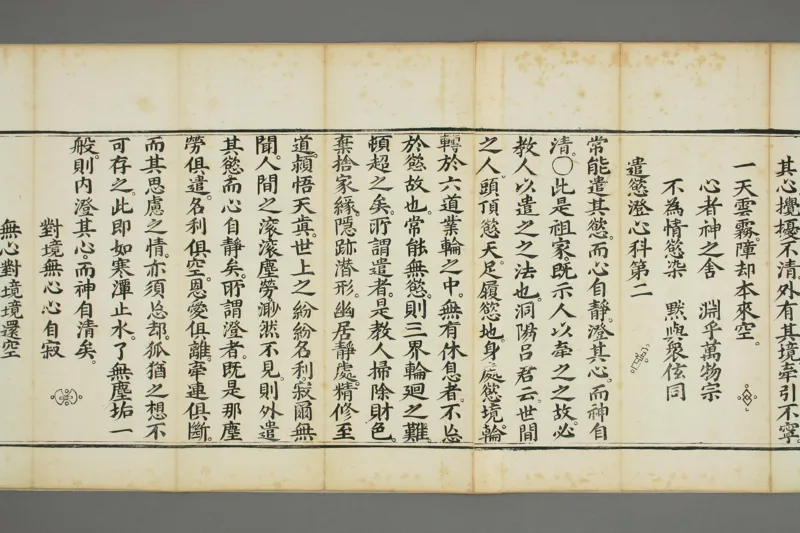 其心攪擾不清外有其境牽引不寧。
一天雲霧。障却本來空。
心者神之舍　淵乎萬物宗
不為情慾染　默與衆佐同
遣慾澄心科第二
常能遣其慾。而心自靜。澄其心。而神自
清。〇此是祖家。既示人以牽之之故。必
教人以遣之之法也。洞陽呂君云。世間
之人。頭頂慾天。足履慾地。身處慾境。輪
轉於六道業輪之中。無有休息者。不忘
於慾故也。常能無慾。則三界輪迴之難。
頓超之矣。所謂遣者。是教人掃除財色。
棄捨家緣。隱跡潜形。幽居靜處。精修至
道。頼悟天真。世上之紛紛名利。寂爾無
聞。人間之滚滚塵勞。渺然不見。則外遣
其慾而心自靜矣。所謂澄者。既是那塵
勞俱遣。名利俱空。恩愛俱離。牽連俱斷。
而其思慮之情。亦須忘却。狐猶之想。不
可存之。此即如寒潭止水。了無塵垢一
般。則内澄其心。而神自清矣。
對境無心心自寂
無心對境境還空